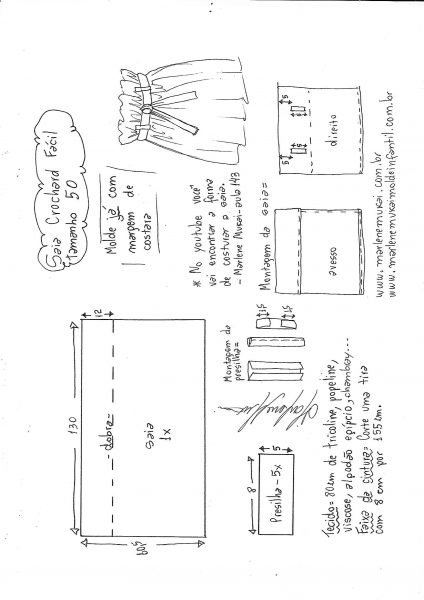 Saia Crochard Fácil
tamanho 50
Molde já com
1 margem de
costura
* No youtube você
vai encontrar a forma
de costurar a saia.
- Marlene Mukai - aula 143
Montagem da saia=
5
5
5
direito
avesso
www.marlenemukai.com.br
www.marlenemukaimoldeinfantil.com.br
130
12
- dobra -
saia
1x
60
Montagem da
presilha=
1,5
1,5
8
5
Presilha - 5x
Tecido= 80cm de tricoline, popeline,
viscose, algodão egípcio, chambray...
Faixa da cintura= Corte uma tira
com 8 cm por 155cm.